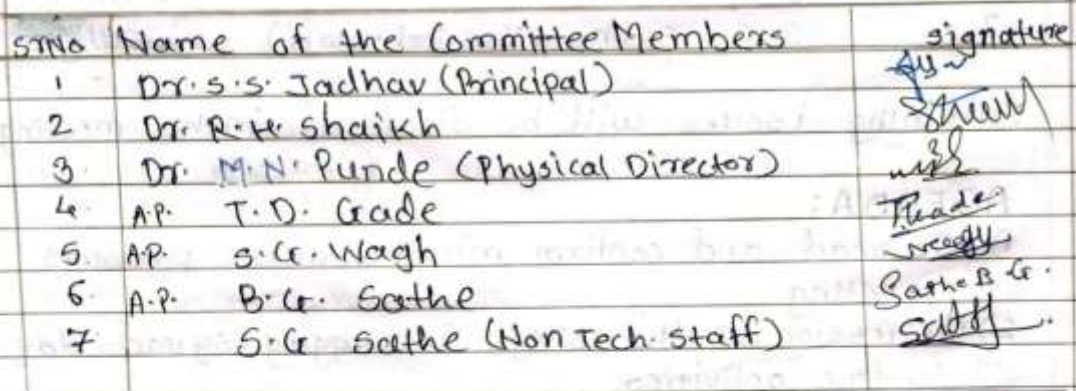 Sr.No Name of the Committee Members signature
1 Dr. S.S. Jadhav (Principal)
2 Dr. R.H. Shaikh
3 Dr. M.N. Punde (Physical Director)
4 A.P. T.D. Gade
5 A.P. S.G. Wagh
6. A.P. B.G. Sathe Sathe B G.
7 S.G Sathe (Non Tech. Staff)